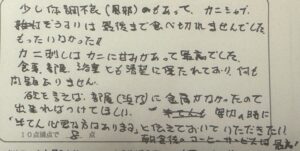 少し体調不良(風邪)のあって、カニしゃぶ
雑炊ぞうすいは最後まで食べきれませんでした。
もったいなかった!!
カニ刺しはカニに甘みがあって最高でした。
食事、部屋、浴室とも清潔に保たれており、何も
問題ありません。
欲をいえば、部屋(浴室)に金庫がなかったので
出来ればつけてほしい。 案内の時に
「半てん必要な方はあります」と伝えておいていただきたい!
10点満点で 8 点 朝食後のコーヒーサービスは最高!